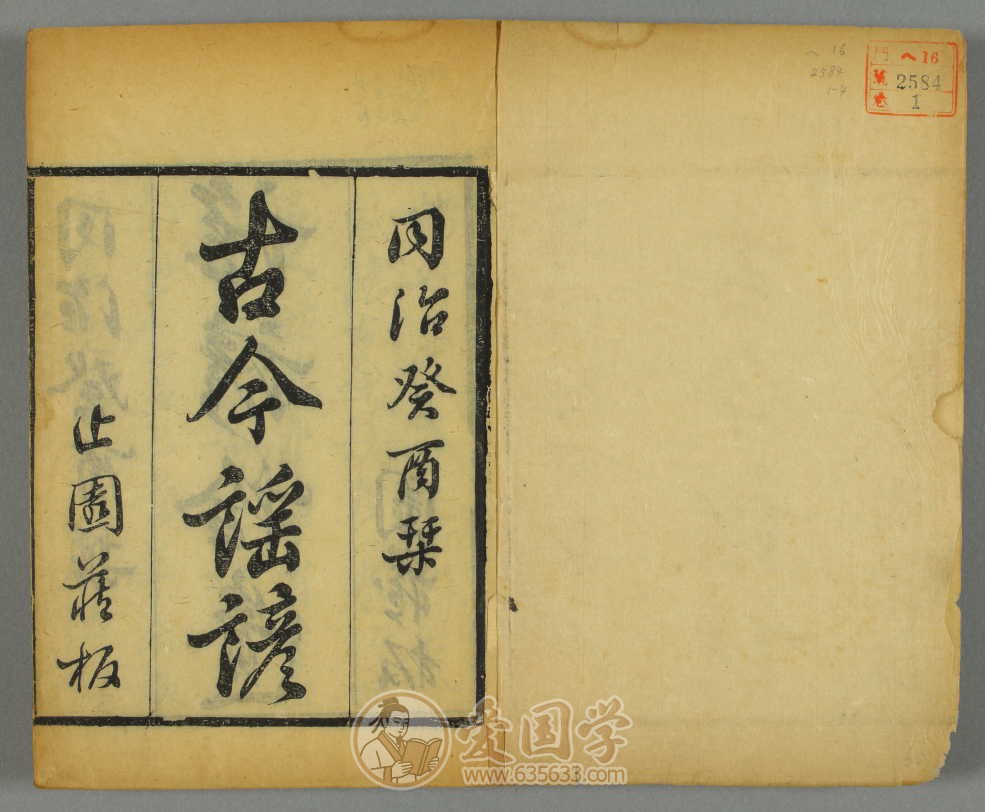 同治癸酉栞
古今謡諺
止園藏板
ヘ 16
2584
1-4
門 ヘ16
號 2584
卷 1
爱国学
www.635633.com